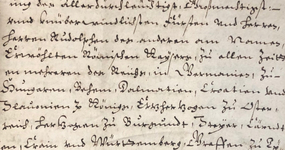 ung des allerdurchleuchtigst: Großmechtigst:
und unüberwindlichsten Fürsten und Herrn,
herren Rudolphen des anderen am Namen,
Erwöhlten Römischen Kayser, zu allen Zeiten
en mehreren des Reichs, in Germanien, zu
Hungern, Behem, Dalmatien, Croatien und
Sclauonien &c Königs, Ertzhertzogen zu Öster-
reich, hertzogen zu Burgundt, Steyer, Cärndt
en, Crain und Würtemberg, Graffen zu